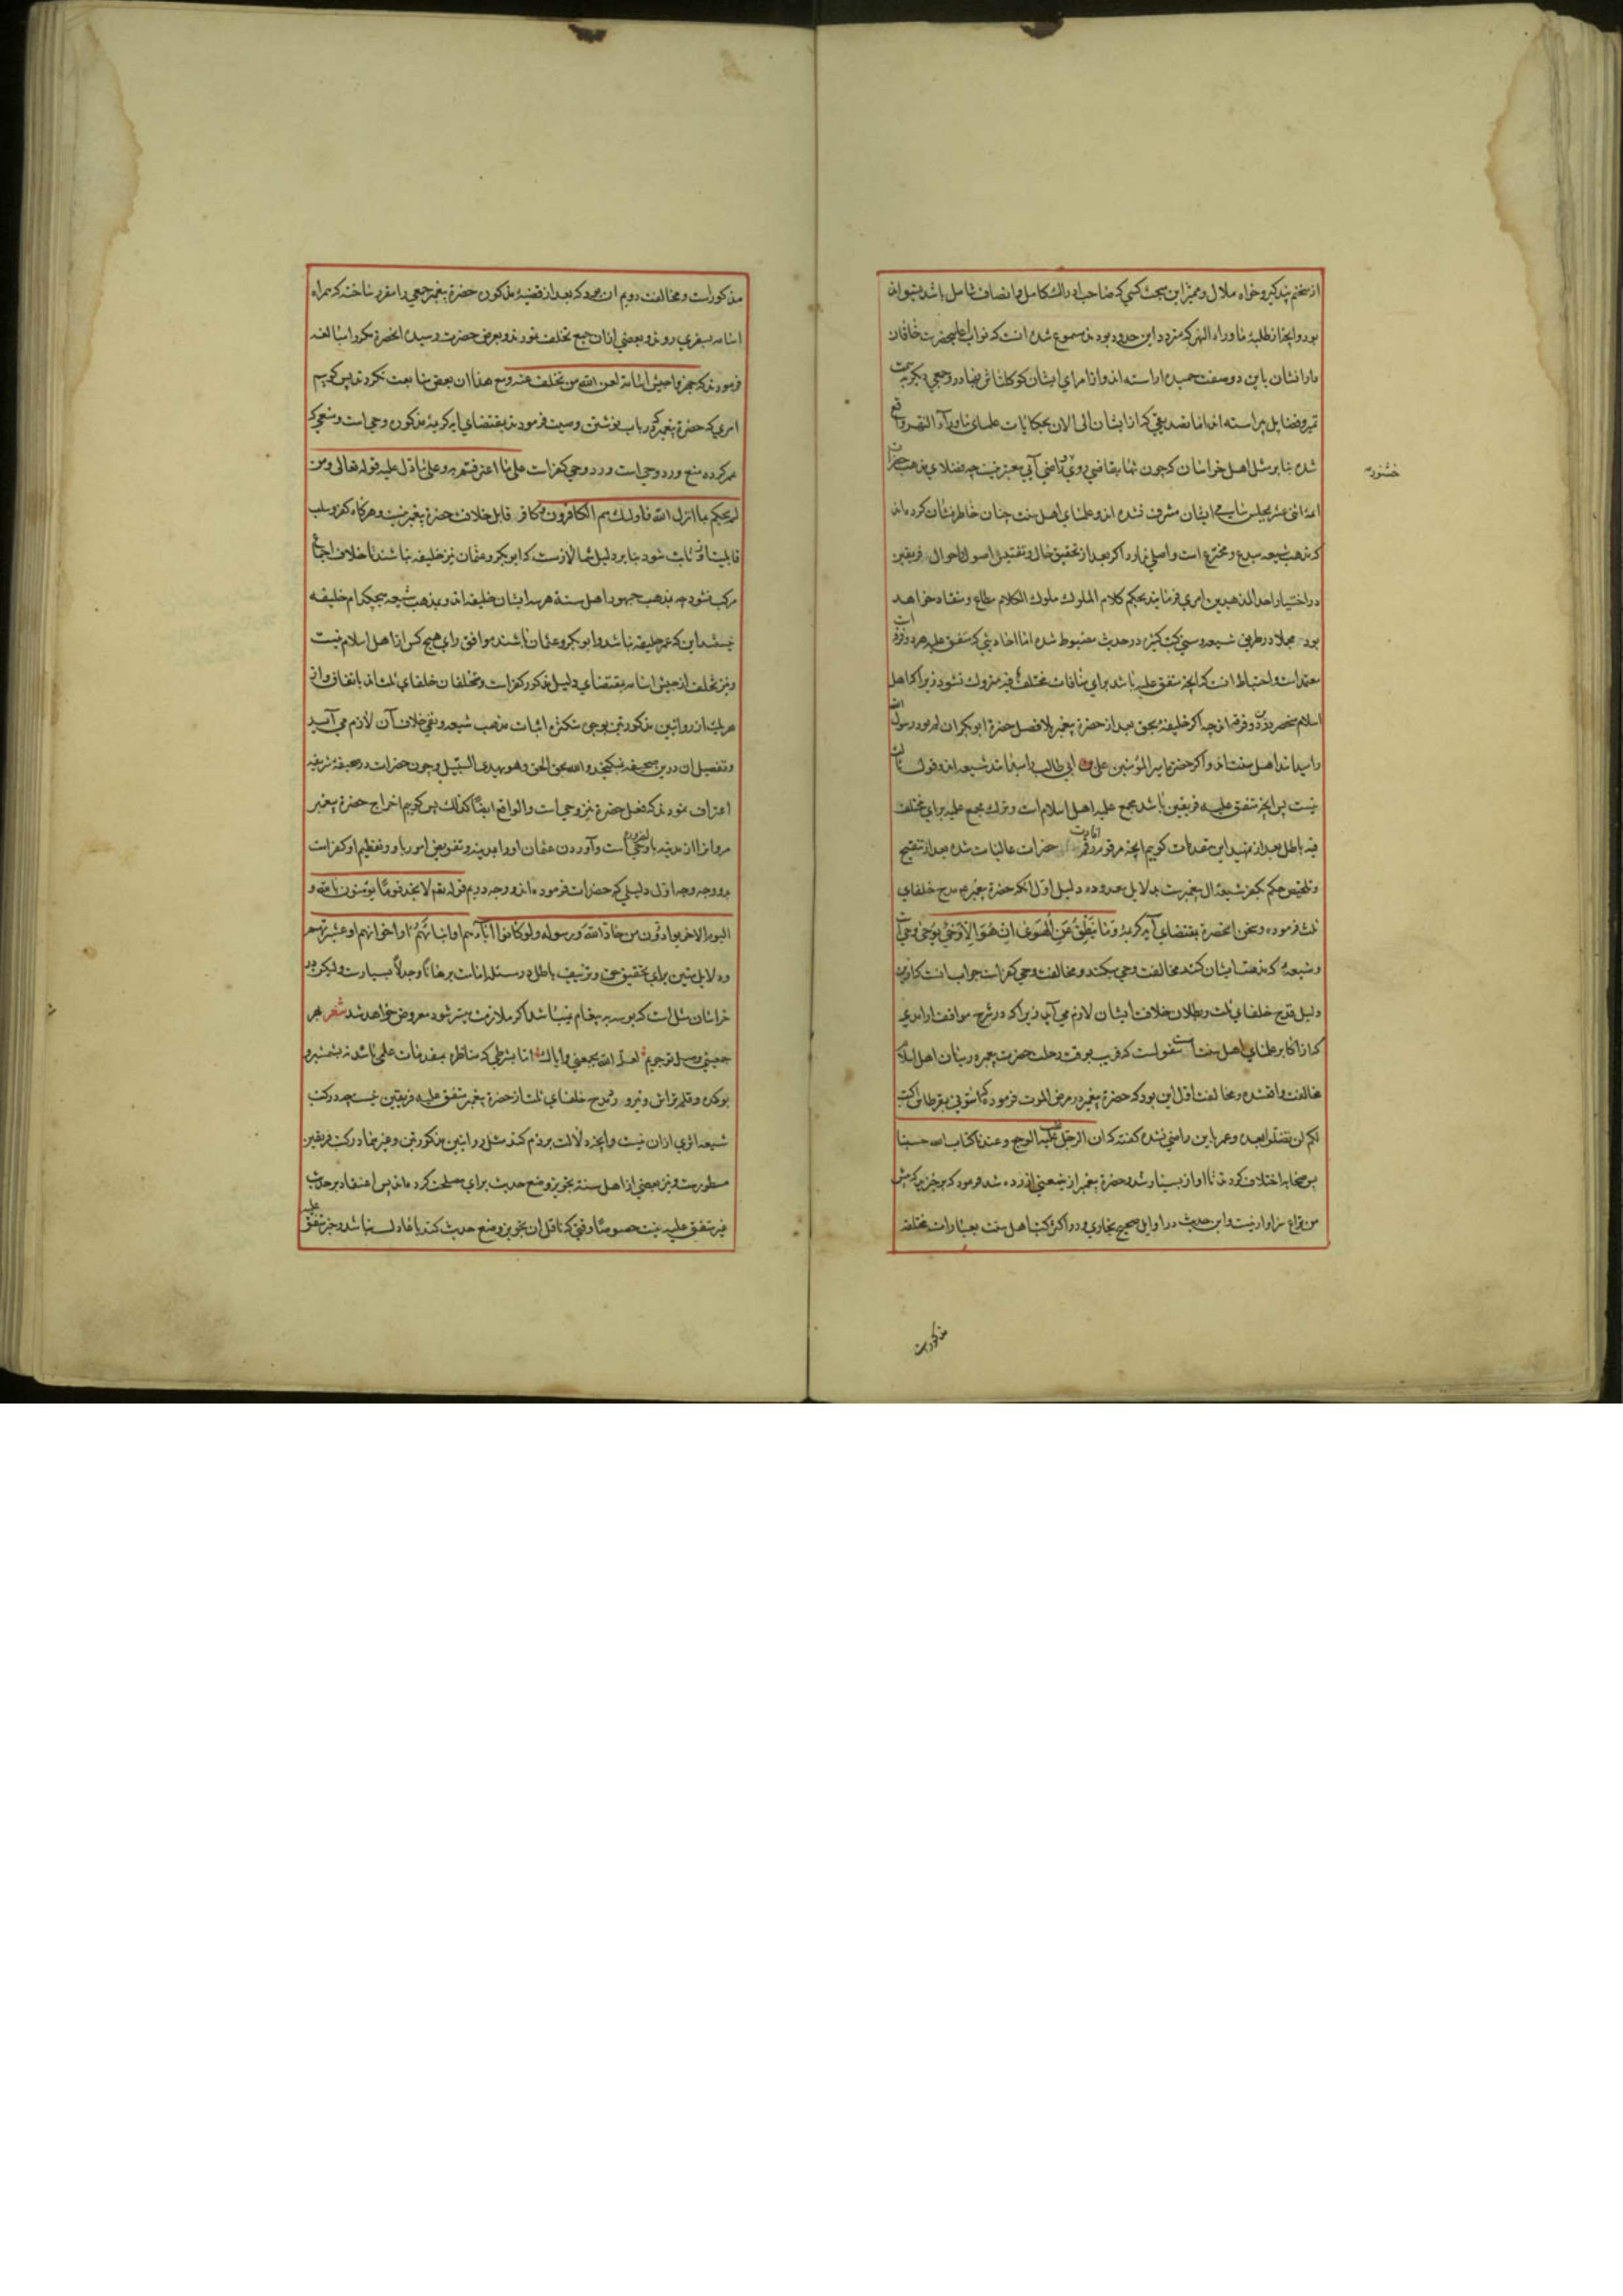 از سخنم پند گیر و خواه ملال و ممیز این مبحث کسی که صاحب ادراک کامل و انصاف شامل باشد میتواند
بود و آنچه از طلبهٔ ماوراء النهر که متردد این حدود بودند مسموع شده انست که نواب اعلیحضرت خاقان
دارانشان باین دو صفت حمیده اراسته اند و از امرای ایشان کوکلتاش بهادر و جمعی دیگر بسمت
تمیز و فضایل پیراسته اند اما تصدیقی که از ایشان الی الان بحکایات علمای ماوراء النهر واقع
شده بنا بر مثل اهل خراسان که چون تنها بقاضی روی راضی آیی معتبر نیست چه فضلای مذهب حضرات
خشنود
ائمه اثنی عشر بمجلس سامی ایشان مشرف نشده اند و علمای اهل سنت چنان خاطرنشان کرده اند
که مذهب شیعه مبدع و مخترع است و اصلی ندارد اگر بعد از تحقیق حال و تفتیش اصول احوال فریقین
در اختیار احد المذهبین امری فرمایند بحکم کلام الملوک ملوک الکلام مطاع و منقاد خواهد
بود مجملا در طریق شیعه و سنی کتب کثیره در حدیث مضبوط شده اما احادیثی که متفق علیه هر دو فرقه است
معتمد است و احتیاط انست که آنچه متفق علیه باشد برای منافات مختلف فیه متروک نشود زیرا که اهل
اسلام منحصر درین دو فرقه اند چه اگر خلیفه بحق بعد از حضرة پیغمبر بلا فصل حضرة ابو بکر ان
را میدانند اهل سنت اند و اگر حضرة امیر المؤمنین علی بن ابی طالب را میدانند شیعه اند و قول ثالث
نیست پس آنچه متفق علیه فریقین باشد مجمع علیه اهل اسلام است و ترک مجمع علیه برای مختلف
فیه باطل بعد از تمهید این مقدمات گوییم آنچه مرقوم حضرات عالیات شده بعد از تنقیح
و تلخیص حکم بکفر شیعه ال پیغمبر است بدلایل معدوده دلیل اول انکه حضرة پیغمبر مدح خلفای
ثلث فرموده و سخن انحضرة بمقتضای آیه کریمه وَمَا یَنْطِقُ عَنِ الْهَوَى اِنْ هُوَ اِلّا وَحْیٌ یُوحَى وحی است
و شیعه که مذمت ایشان کنند مخالفت وحی میکنند و مخالفت وحی کفر است جواب انست که ازین
دلیل قدح خلفای ثلث و بطلان خلافت ایشان لازم می آید زیرا که در شرح مواقف از امدی
که از اکابر علمای اهل سنت است منقولست که قریب بوقت رحلت حضرت پیغمبر در میان اهل اسلام
مخالفت واقع شد و مخالفت اول این بود که حضرة پیغمبر در مرض الموت فرمود که ائتونی بقرطاس اکتب
لکم لن تضلوا بعده و عمر باین راضی نشده گفته که ان الرجل غلبه الوجع و عندنا کتاب الله حسبنا
پس صحابه اختلاف کردند تا اواز بسیار شد و حضرة پیغمبر ازین معنی ازرده شد فرمود که برخیزید که پیش
من نزاع سزاوار نیست و این حدیث در اوایل صحیح بخاری و در اکثر کتب اهل سنت بعبارات مختلفه
مذکورست
مذکور است و مخالفت دویم ان بود که بعد از قضیهٔ مذکوره حضرة پیغمبر جمعی را مقرر ساخت که همراه
اسامه بسفری روند و بعضی ازان جمع تخلف نمودند و بعرض حضرت رسید انحضرة مکرر مبالغه
فرمودند که جهزوا جیش اسامة لعن الله من تخلف عنه و مع هذا ان بعض متابعت نکردند پس گوییم
امری که حضرة پیغمبر در باب نوشتن وصیت فرمودند بمقتضای ایه کریمه مذکوره وحی است و منعی که
عمر کرده منع و رد وحی است و رد وحی کفر است علی ما اعترفتم به و علی ما دل علیه قوله تعالی و من
لم یحکم بما انزل الله فاولئک هم الکافرون و کافر قابل خلافت حضرة پیغمبر نیست و هرگاه کفر و سلب
قابلیت او ثابت شود بنا بر دلیل شما لازمست که ابو بکر و عثمان نیز خلیفه نباشند تا خلاف اجماع
مرکب نشود چه بمذهب جمهور اهل سنة هر سه ایشان خلیفه اند و بمذهب شیعه هیچکدام خلیفه
نیستند این که عمر خلیفه نباشد و ابو بکر و عثمان باشند موافق رای هیچ کس از اهل اسلام نیست
و نیز تخلف از جیش اسامه بمقتضای دلیل مذکور کفر است و متخلفان خلفای ثلث اند باتفاق و از
هر یک از روایتین مذکورتین بوجوه متکثره اثبات مذهب شیعه و نفی خلاف آن لازم می آید
و تفصیل ان درین صحیفه نمیگنجد والله یحق الحق وهو یهدی السبیل و چون حضرات در صحیفه شریفه
اعتراف نمودند که فعل حضرة نیز وحی است و الواقع ایضًا کذلک پس گوییم اخراج حضرة پیغمبر
مروان را از مدینه وحی است و آوردن عثمان او را بمدینه و تفویض امور باو و تعظیم او کفر است
بدو وجه وجه اول دلیلی که حضرات فرموده اند و وجه دویم قوله تعم لا تجد قومًا یؤمنون بالله و
الیوم الاخر یوادون من حاد الله ورسوله ولو کانوا آبآءهم او ابنآءهم او اخوانهم او عشیرتهم
و دلایل متین برای تحقیق حق و تزییف باطل در مسئله امامت برهانًا و جدلاً بسیارست ولیکن در
خراسان مثل است که بوسه به پیغام نمیباشد اگر ملازمت میسر شود معروض خواهد شد شعر بهر
جمعیتی وصل تو جویم لعل الله یجمعنی وایاک اما بشرطی که مناظره بمقدمات علمی باشد نه بشمشیر و
نوکده و قلم تراش و نیزه و مدح خلفای ثلث از حضرة پیغمبر متفق علیه فریقین نیست چه در کتب
شیعه اثری ازان نیست و آنچه دلالت بر ذم کند مثل روایتین مذکورتین و غیرهما در کتب فریقین
مسطورست و نیز بعضی از اهل سنة تجویز وضع حدیث برای مصلحت کرده اند پس اعتقاد بر حدیث
غیر متفق علیه نیست خصوصًا وقتی که ناقل ان تجویز وضع حدیث کند یا عادل نباشد و خبر متفق علیه